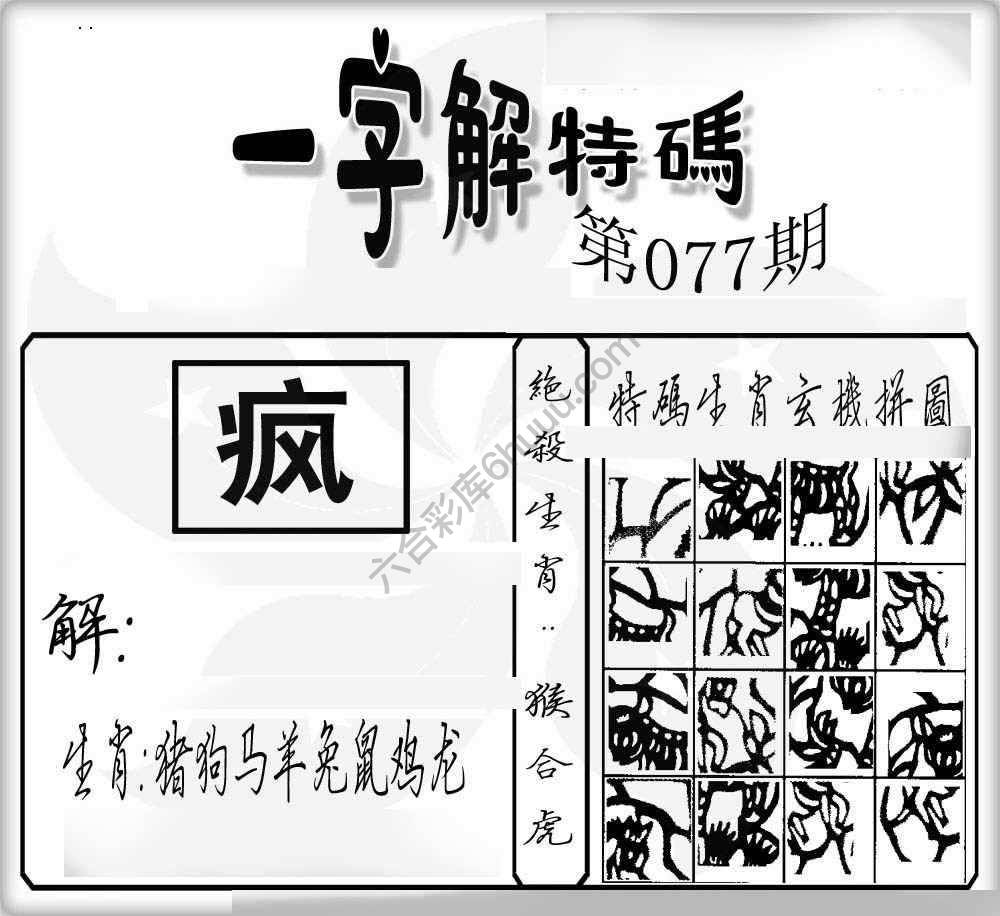 一字解特碼
第077期
疯
解:
生肖:猪狗马羊兔鼠鸡龙
絶殺生肖:猴合虎
特碼生肖玄機拼圖
六合彩库6huuu.com